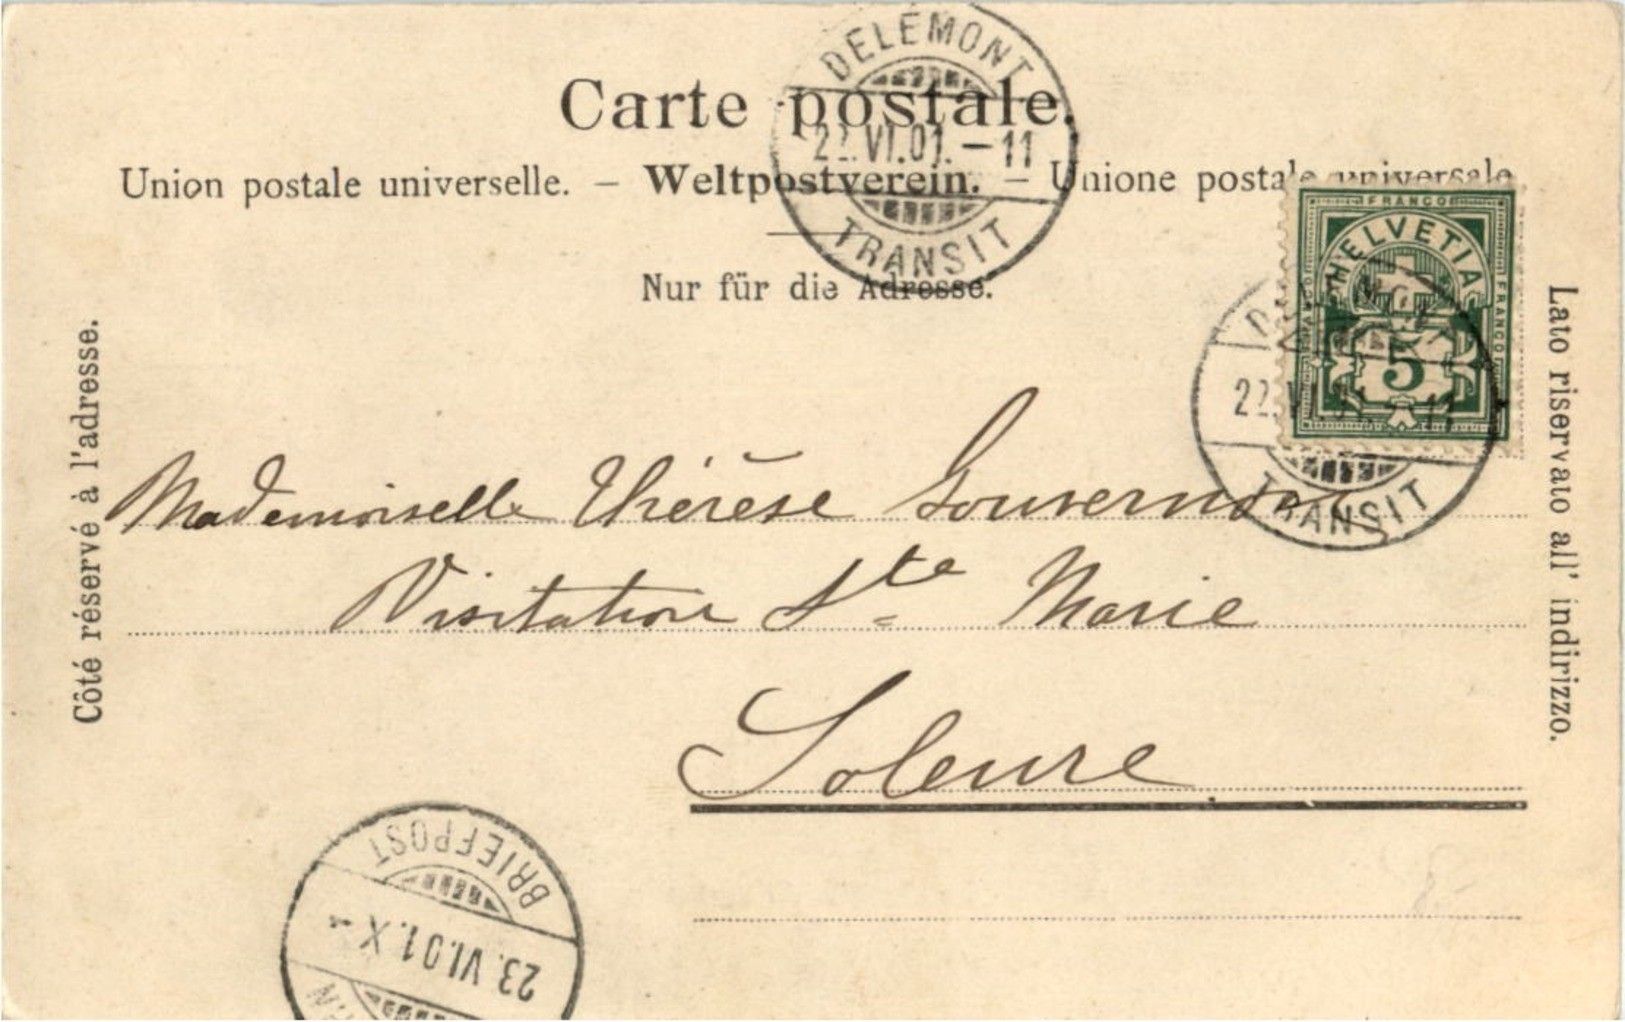 DELÉMONT
Carte postale.
22.VI.01.–11
Union postale universelle. – Weltpostverein. – Unione postale universale
TRANSIT
Nur für die Adresse.
FRANCO
HELVETIA
FRANCO
FRANCO
5
22.VI.01.–11
TRANSIT
Côté réservé à l'adresse.
Lato riservato all' indirizzo.
Mademoiselle Thérèse Gouvernon
Visitation Ste Marie
Soleure
BRIEFPOST
23.VI.01.X–